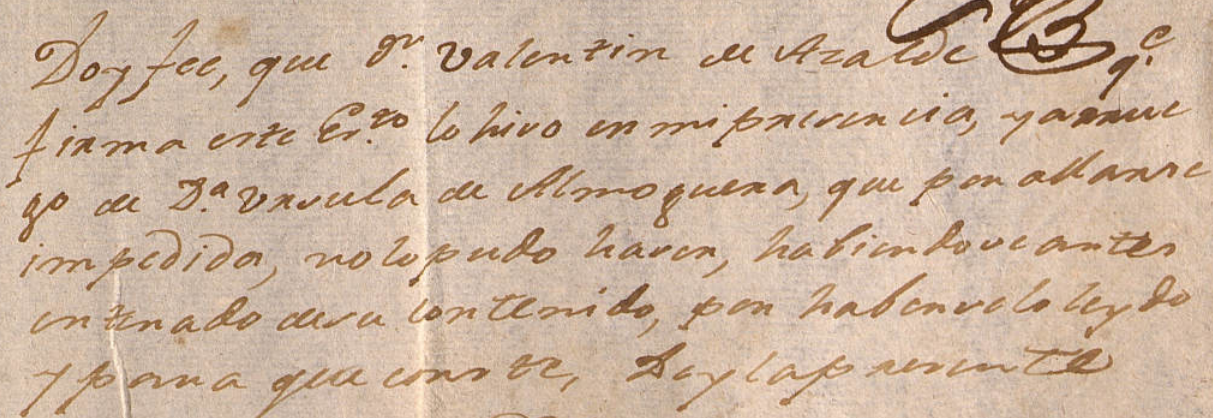 Doy fee, que Dn. Valentin de Azalde q.e
firma este Es.to lo hiso en mi presencia, y a rrue
go de D.a Ursula de Almoguera, que por allarse
impedida, no lo pudo haser, habiendose antes
enterado de su contenido, por haberselo leydo
y para que conste, Doy la presente